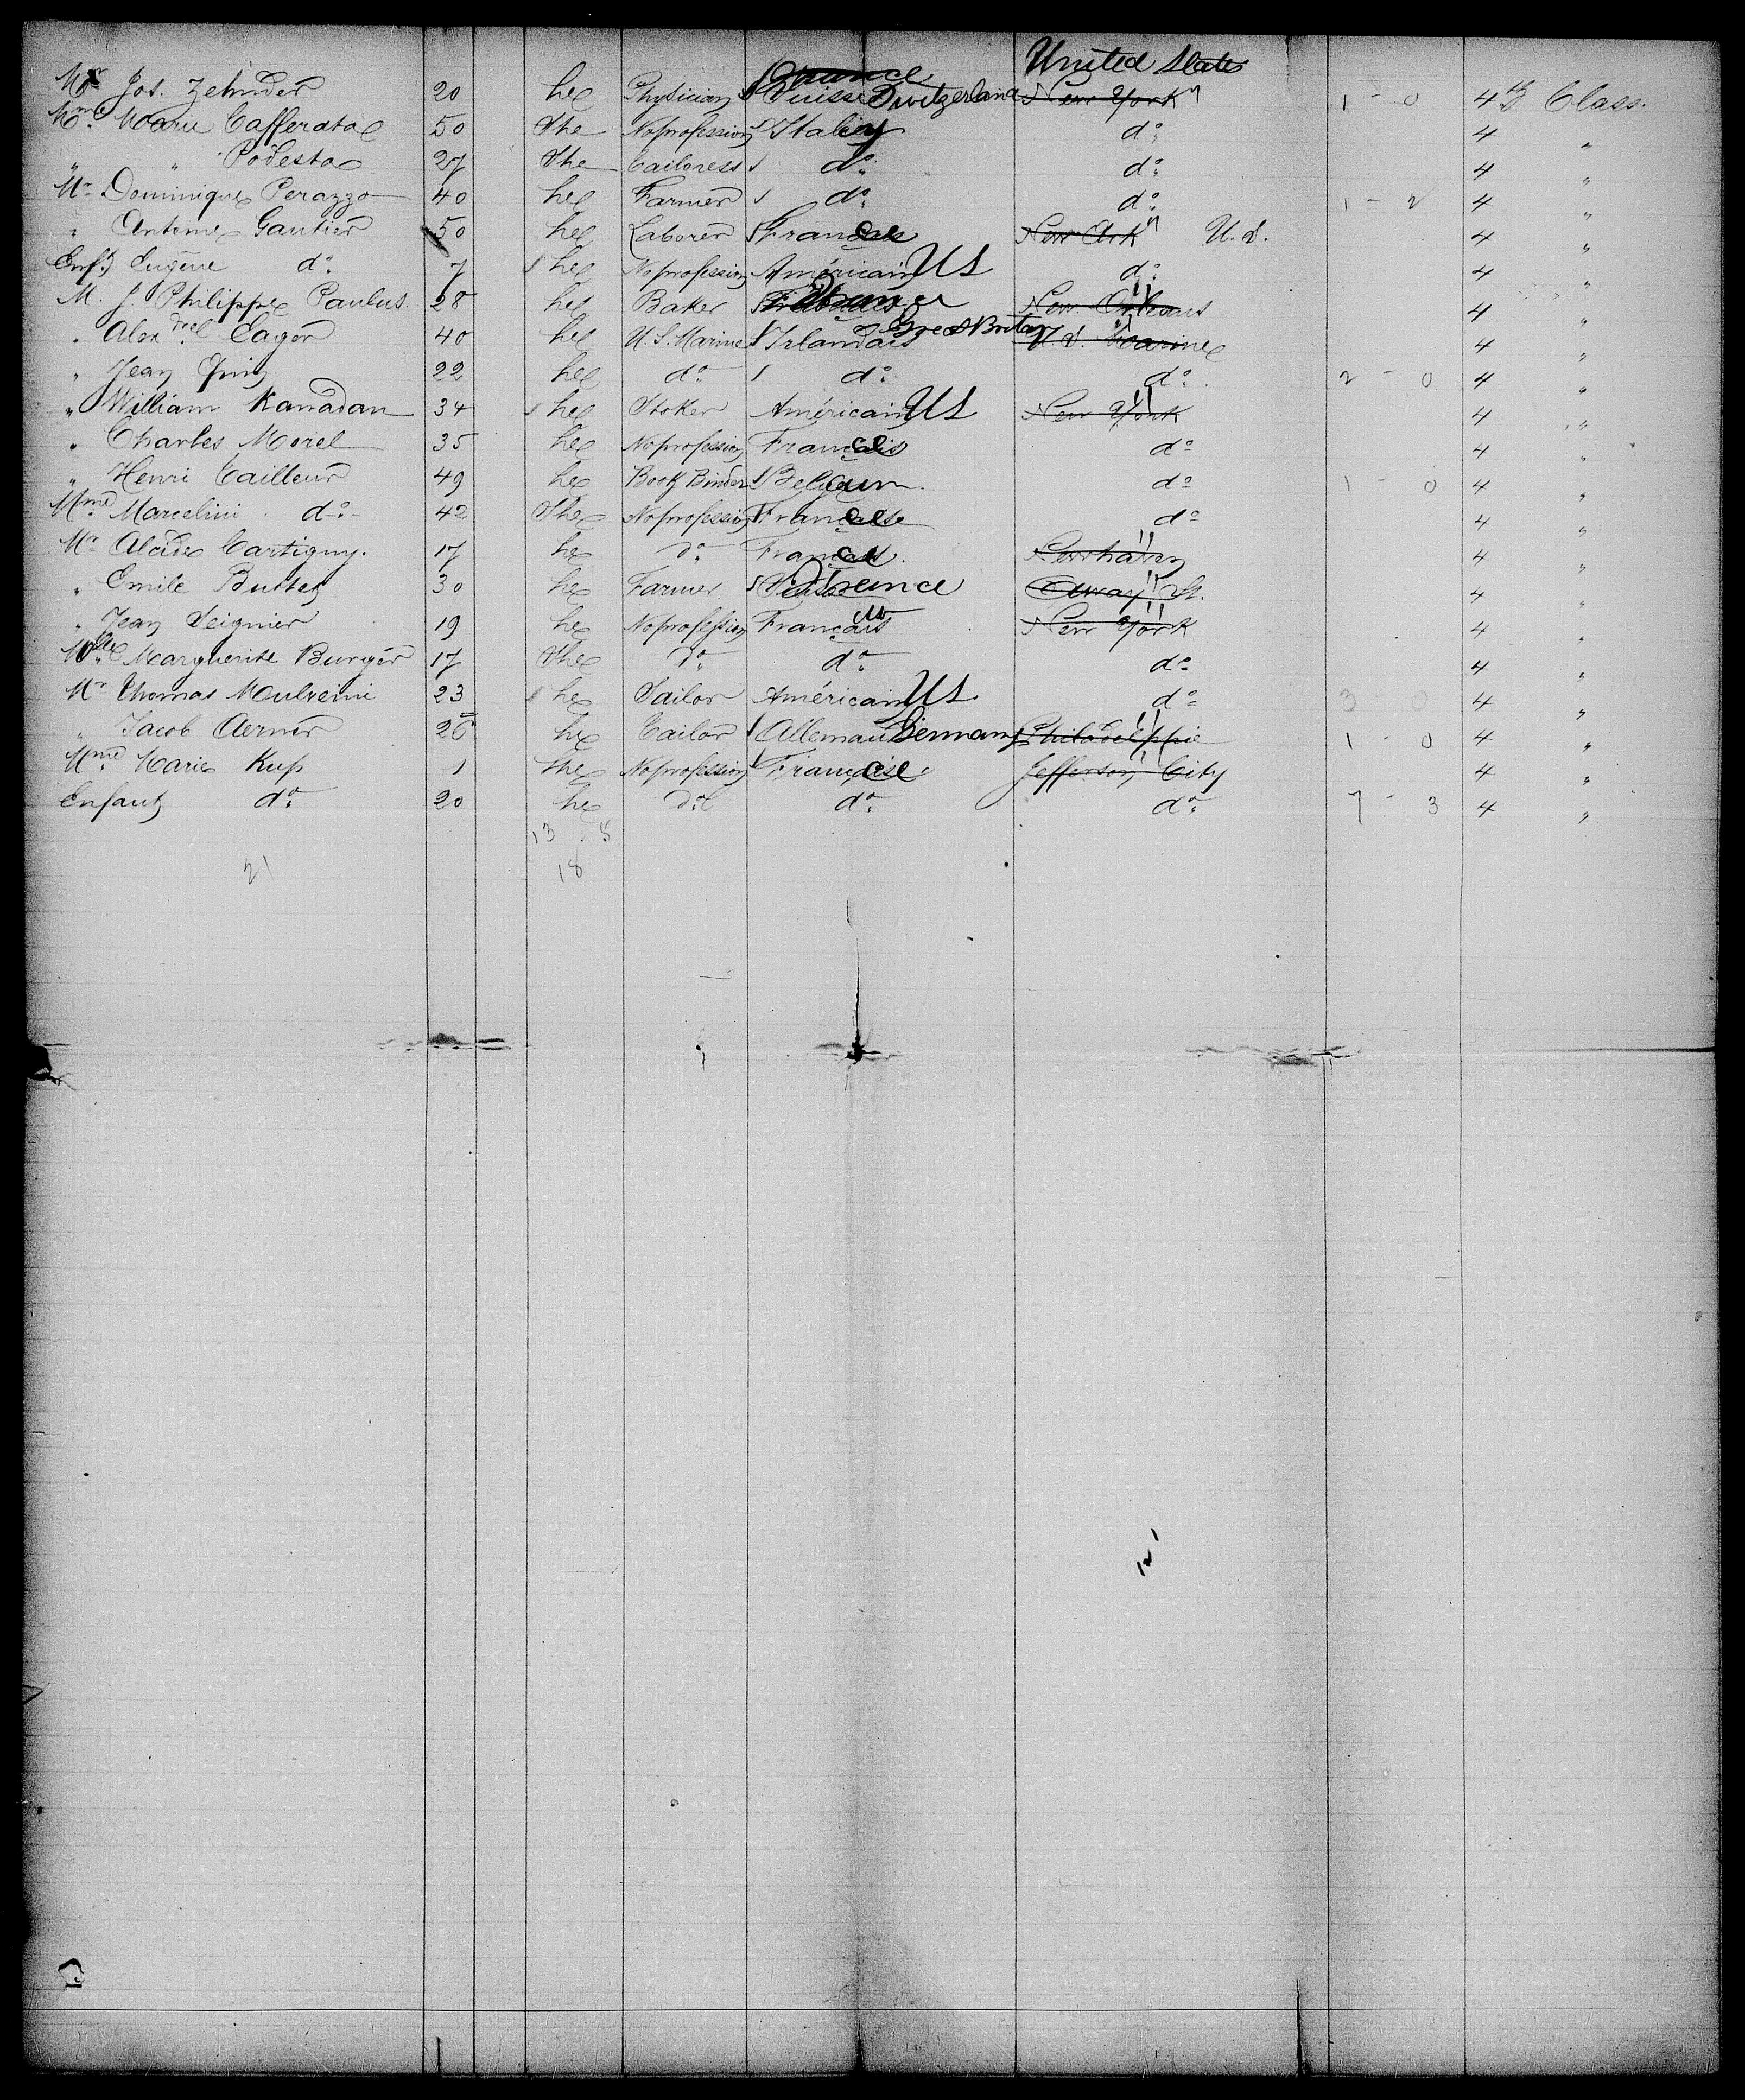 United States
Mr Jos. Zehnder 20 he Physician Suisse Switzerland New York 1 - 0 4th Class.
Mme Marie Cafferata 50 She No profession Italy do 4 "
" " Podesta 27 She Tailoress do do 4 "
Mr Dominique Perazzo 40 he Farmer do do 1 - 2 4 "
" Antoine Gautier 50 he Laborer France New Ark U.S. 4 "
Enft Eugène do 7 he No profession Américain US do 4 "
M. J. Philippe Paulus 28 he Baker France New Orleans 4 "
" Alexdre Eager 40 he U.S. Marine Irlandais Great Britain U.S. Marine 4 "
" Jean 22 he do do do 2 - 0 4 "
" William Kanadan 34 he Stoker Américain US New York 4 "
" Charles Morel 35 he No profession France do 4 "
" Henri Tailleur 49 he Book Binder Belgium do 1 - 0 4 "
Mme Marcelini do 42 She No profession France do 4 "
Mr Alcide Cartigny. 17 he do France 4 "
" Emile Buttet 30 he Farmer Suisse France 4 "
" Jean Seignier 19 he No profession Français New York 4 "
Mlle Marguerite Burger 17 She do do do 4 "
Mr Thomas Mulreini 23 he Sailor Américain US do 3 0 4 "
" Jacob Aerner 26 he Tailor Allemand Germany Philadelphie 1 - 0 4 "
Mme Marie Kup 1 She No profession France Jefferson City 4 "
Enfant do 20 he do do do 7 - 3 4 "
13 5
21 18